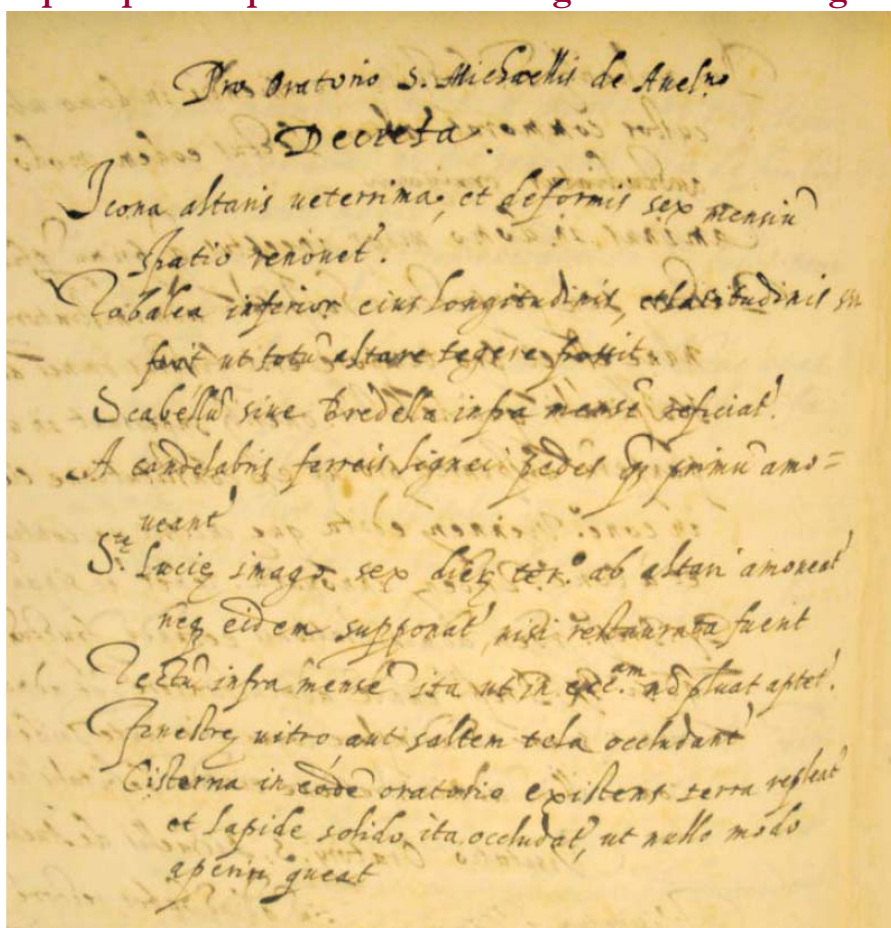 Pro Oratorio S. Michaellis de Auelno
Decreta
Icona altaris ueterrima, et deformis sex mensiū
spatio renouet'.
Tobalea inferior eius longitudinis, et latitudinis
fiat ut totū altare tegere possit
Scabellū siue Bredella infra mensē reficiat'.
A candelabris ferreis lignei pedes primū amo=
ueant'
S.te Lucię imago sex dieb ter.o ab altari amoueat'
neq eidem supponat', nisi restaurata fuerit
Tectū infra mensē ita ut in nō pluat aptet'.
Fenestrę uitro aut saltem tela occludant'
Cisterna in eodē oratorio existens terra repleat'
et lapide solido ita occludat', ut nullo modo
aperiri queat